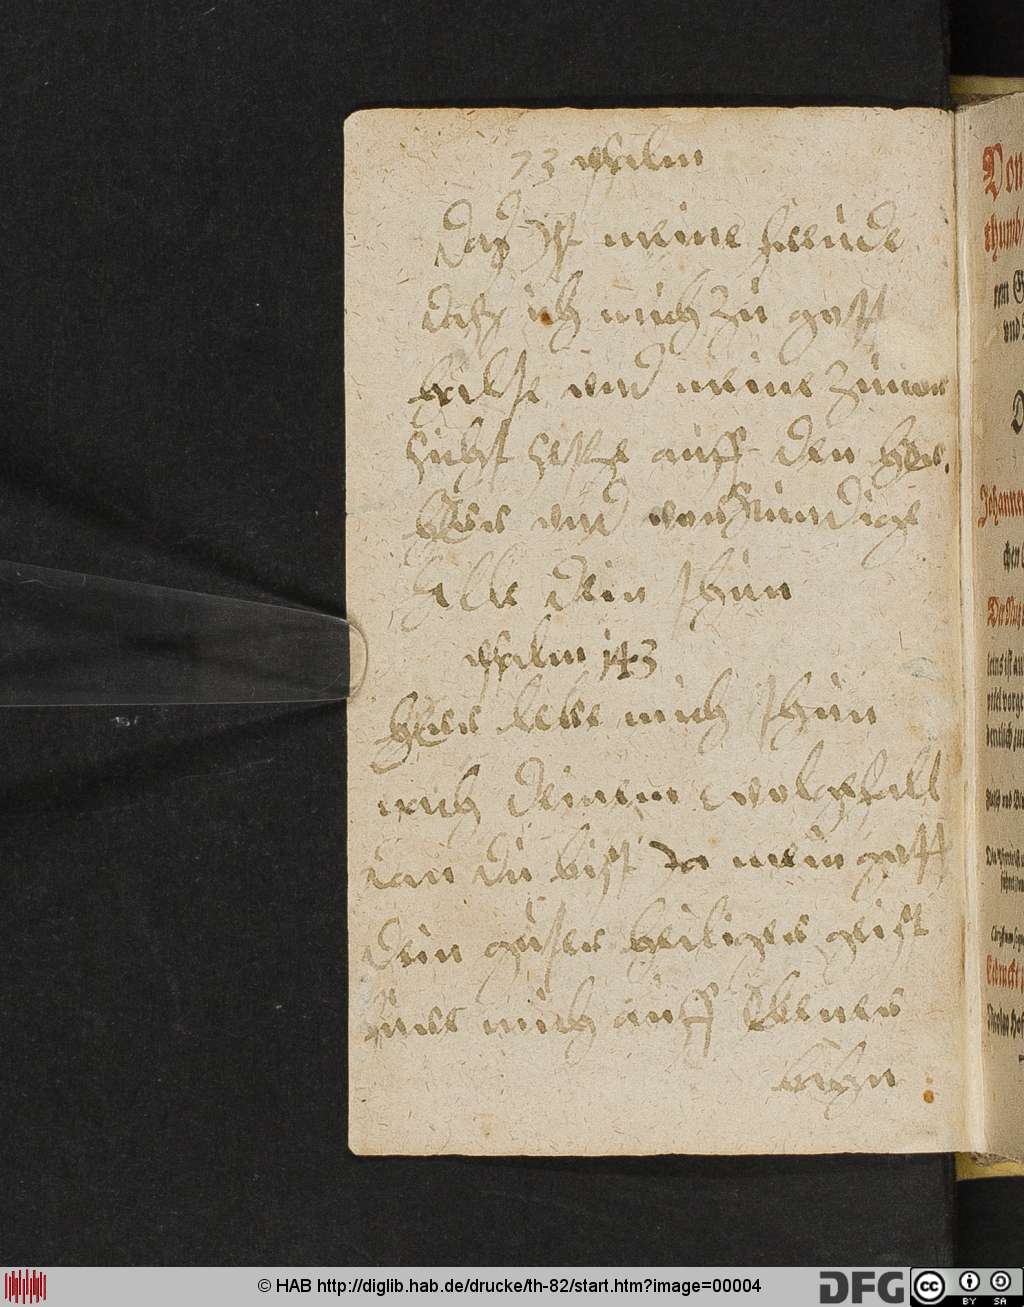 73 psalm
Das Ist meine freude
das ich mich zu gott
halte und meine zuuor
sicht setze auff den her
hErr und verkundige
alle dein thun
psalm 143
hErr lere mich thun
nach deinem wolgefall
dan du bist Ja mein gott
dein guter heiliger geist
fure mich auff Ebener
bahn
Von
thumb
Johannes
© HAB http://diglib.hab.de/drucke/th-82/start.htm?image=00004
DFG
cc
BY SA